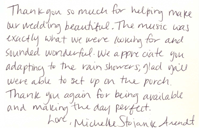 Thank you so much for helping make
our wedding beautiful. The music was
exactly what we were looking for and
sounded wonderful. We appreciate you
adapting to the rain showers, glad you
were able to set up on the porch.
Thank you again for being available
and making the day perfect.
Love, Michelle & Arendt